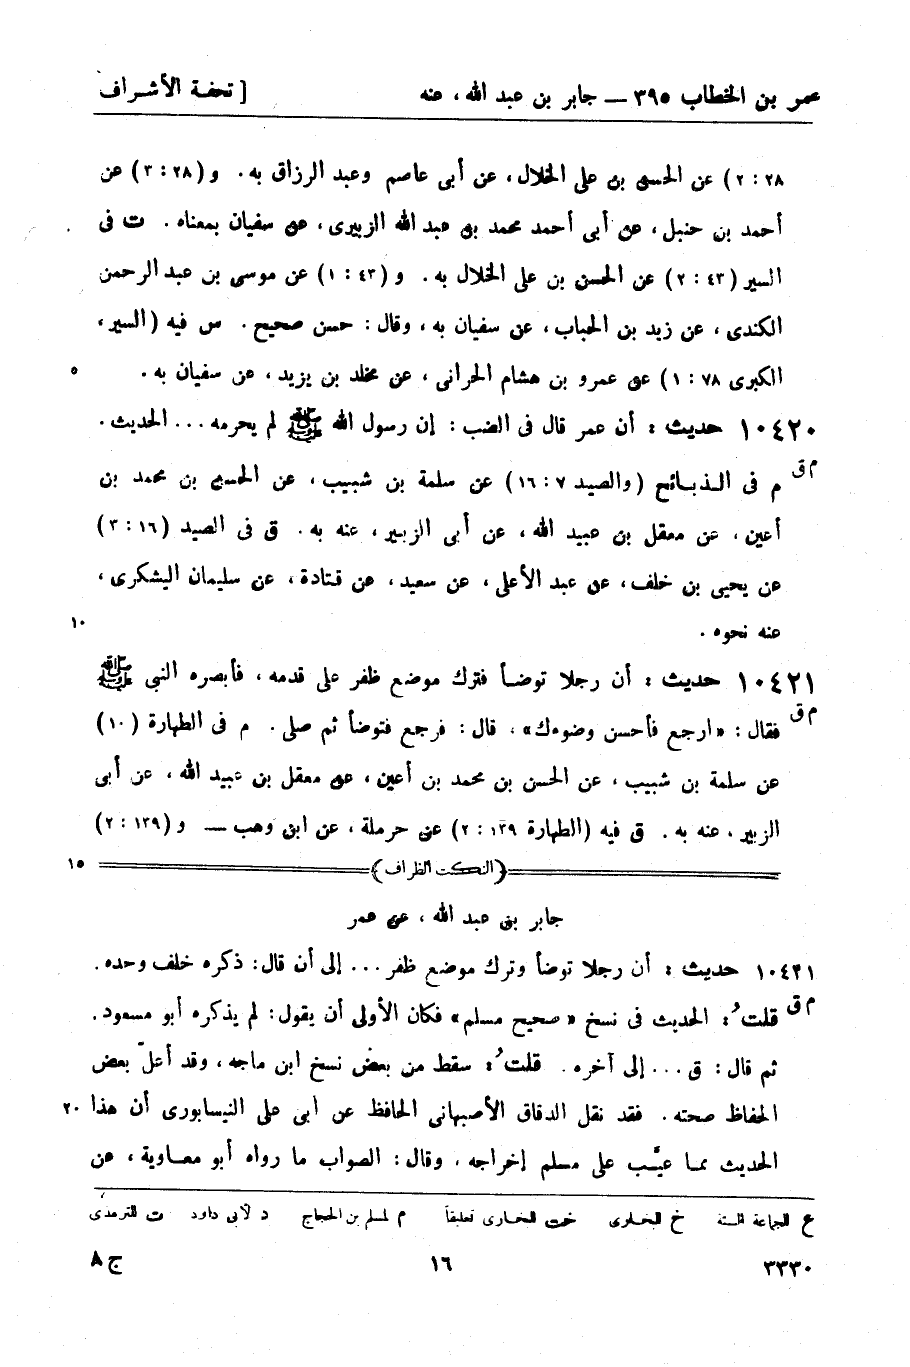 عمر بن الخطاب ٣٩٥ — جابر بن عبد الله ، عنه [ تحفة الأشراف
٢٨ : ٢ ) عن الحسن بن على الخلال ، عن أبى عاصم وعبد الرزاق به . و ( ٢٨ : ٣ ) عن
أحمد بن حنبل ، عن أبى أحمد محمد بن عبد الله الزبيرى ، عن سفيان بمعناه . ت فى
السير ( ٤٣ : ٢ ) عن الحسن بن على الخلال به . و ( ٤٣ : ١ ) عن موسى بن عبد الرحمن
الكندى ، عن زيد بن الحباب ، عن سفيان به ، وقال : حسن صحيح . س فيه ( السير ،
الكبرى ٧٨ : ١ ) عن عمرو بن هشام الحرانى ، عن مخلد بن يزيد ، عن سفيان به . ٥
١٠٤٢٠ حديث : أن عمر قال فى الضب : إن رسول الله ﷺ لم يحرمه . . . الحديث .
م ق م فى الذبائح ( والصيد ٧ : ١٦ ) عن سلمة بن شبيب ، عن الحسن بن محمد بن
أعين ، عن معقل بن عبيد الله ، عن أبى الزبير ، عنه به . ق فى الصيد ( ١٦ : ٣ )
عن يحيى بن خلف ، عن عبد الأعلى ، عن سعيد ، عن قتادة ، عن سليمان اليشكرى ،
عنه نحوه . ١٠
١٠٤٢١ حديث : أن رجلا توضأ فترك موضع ظفر على قدمه ، فأبصره النبى ﷺ
م ق فقال : « ارجع فأحسن وضوءك » ، قال : فرجع فتوضأ ثم صلى . م فى الطهارة ( ١٠ )
عن سلمة بن شبيب ، عن الحسن بن محمد بن أعين ، عن معقل بن عبيد الله ، عن أبى
الزبير ، عنه به . ق فيه ( الطهارة ١٣٩ : ٢ ) عن حرملة ، عن ابن وهب — و ( ١٣٩ : ٢ )
( النكت الظراف ) ١٥
جابر بن عبد الله ، عن عمر
١٠٤٢١ حديث : أن رجلا توضأ وترك موضع ظفر . . . إلى أن قال : ذكره خلف وحده .
م ق قلتُ : الحديث فى نسخ « صحيح مسلم » فكان الأولى أن يقول : لم يذكره أبو مسعود .
ثم قال : ق . . . إلى آخره . قلتُ : سقط من بعض نسخ ابن ماجه ، وقد أعلّ بعض
الحفاظ صحته . فقد نقل الدقاق الأصبهانى الحافظ عن أبى على النيسابورى أن هذا ٢٠
الحديث مما عيَّب على مسلم إخراجه ، وقال : الصواب ما رواه أبو معاوية ، عن
ع للجماعة الستة خ للبخارى خت للبخارى تعليقاً م لمسلم بن الحجاج د لأبى داود ت للترمذى
٣٣٣٠ ١٦ ج ٨